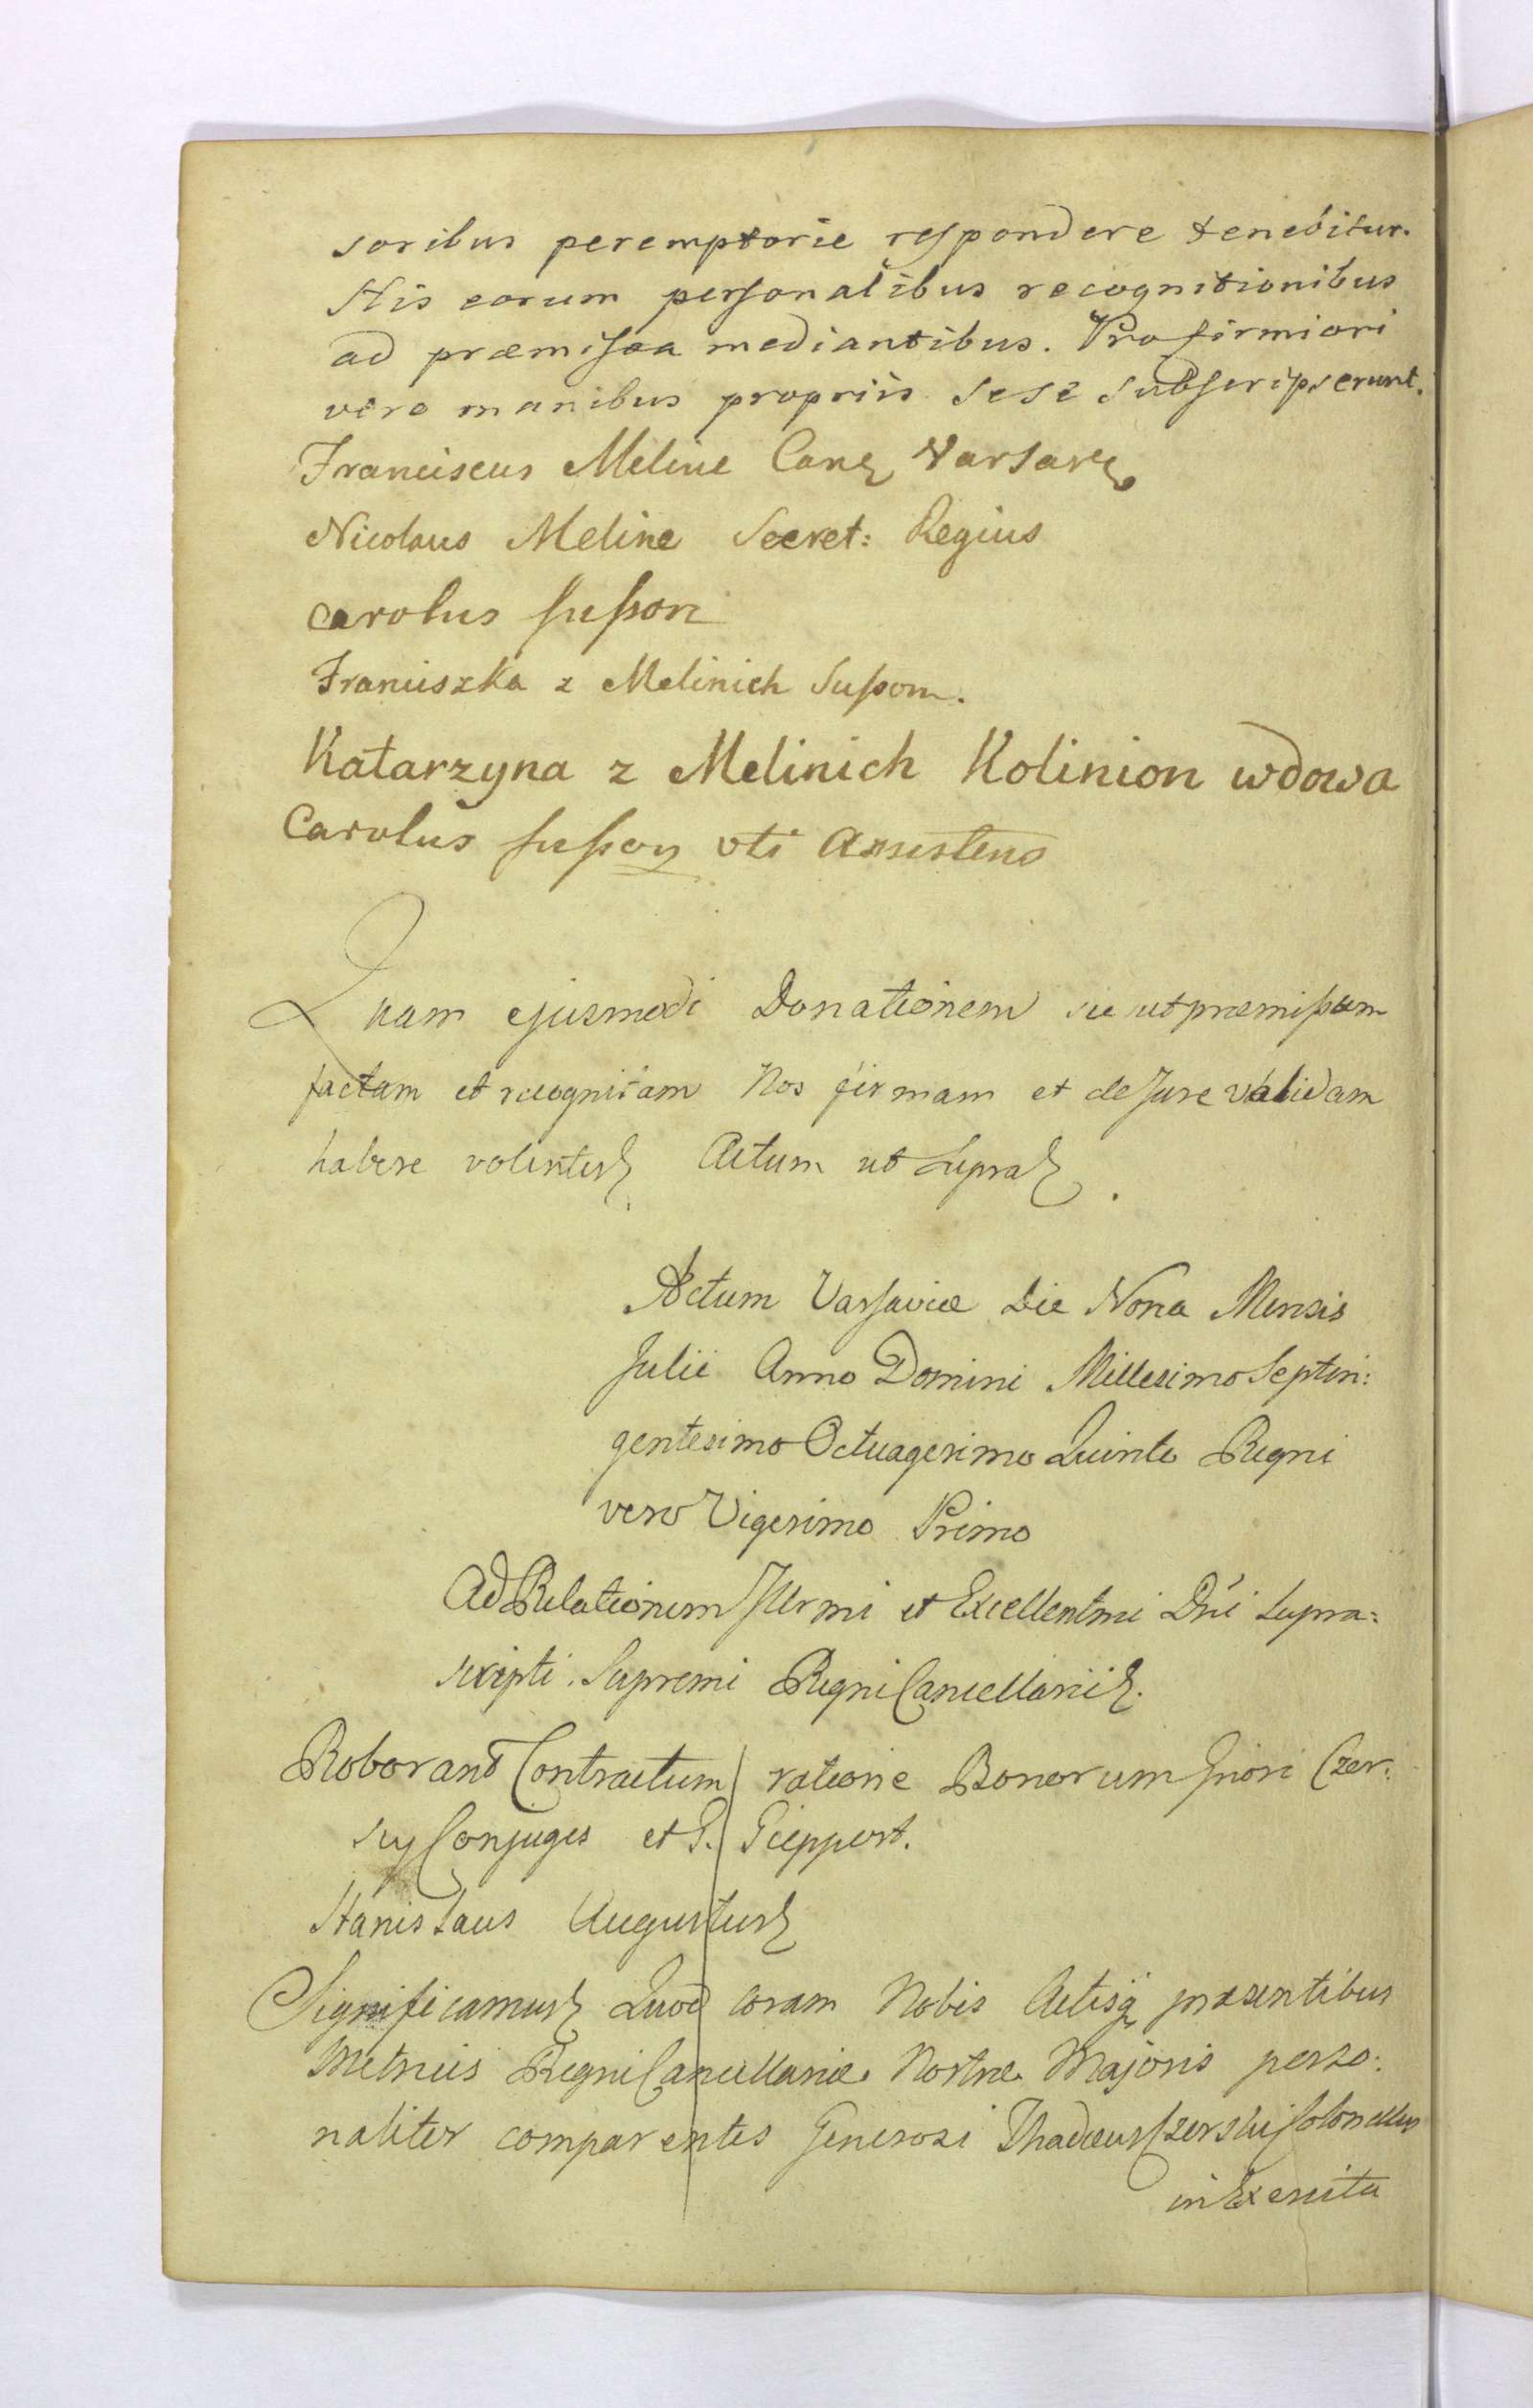 soribus peremptorie respondere tenebitur.
His eorum personalibus recognitionibus
ad præmissa mediantibus. Pro firmiori
vero manibus propriis sese subscripserunt.
Franciscus Meline Can Varsav
Nicolaus Meline Secret: Regius
Carolus susson
Franciszka z Melinich Susson.
Katarzyna z Melinich Kolinion wdowa
Carolus susson uti Assistens
Quam ejusmodi Donationem sic ut præmissum
factam et recognitam Nos firmam et de Jure validam
habere volentes Actum ut Supra.
Actum Varsaviæ Die Nona Mensis
Julii Anno Domini Millesimo Septin:
gentesimo Octuagesimo Quinto Regni
vero Vigesimo Primo
Ad Relationem Illrmi et Excellentmi Dni supra:
scripti Supremi Regni Cancellarii.
Roborant Contractum ratione Bonorum Gnosi Czer:
scy Conjuges et G. Gieppert.
Stanislaus Augustus
Significamus Quod coram Nobis Actisq præsentibus
Metrices Regni Cancellariæ Nostræ Majoris perso:
naliter comparentes Generosi Thadæus Czerski Colonellus
in Exercitu